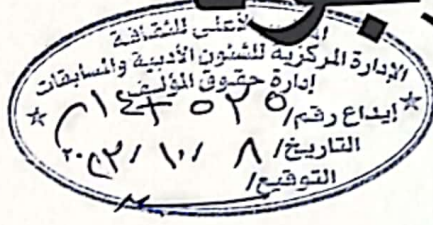 الأعلى للثقافة
الإدارة المركزية للشئون الأدبية والمسابقات
إدارة حقوق المؤلف
إيداع رقم/
التاريخ/ ٨ / ١٠ / ٢٠٢٣
التوقيع/